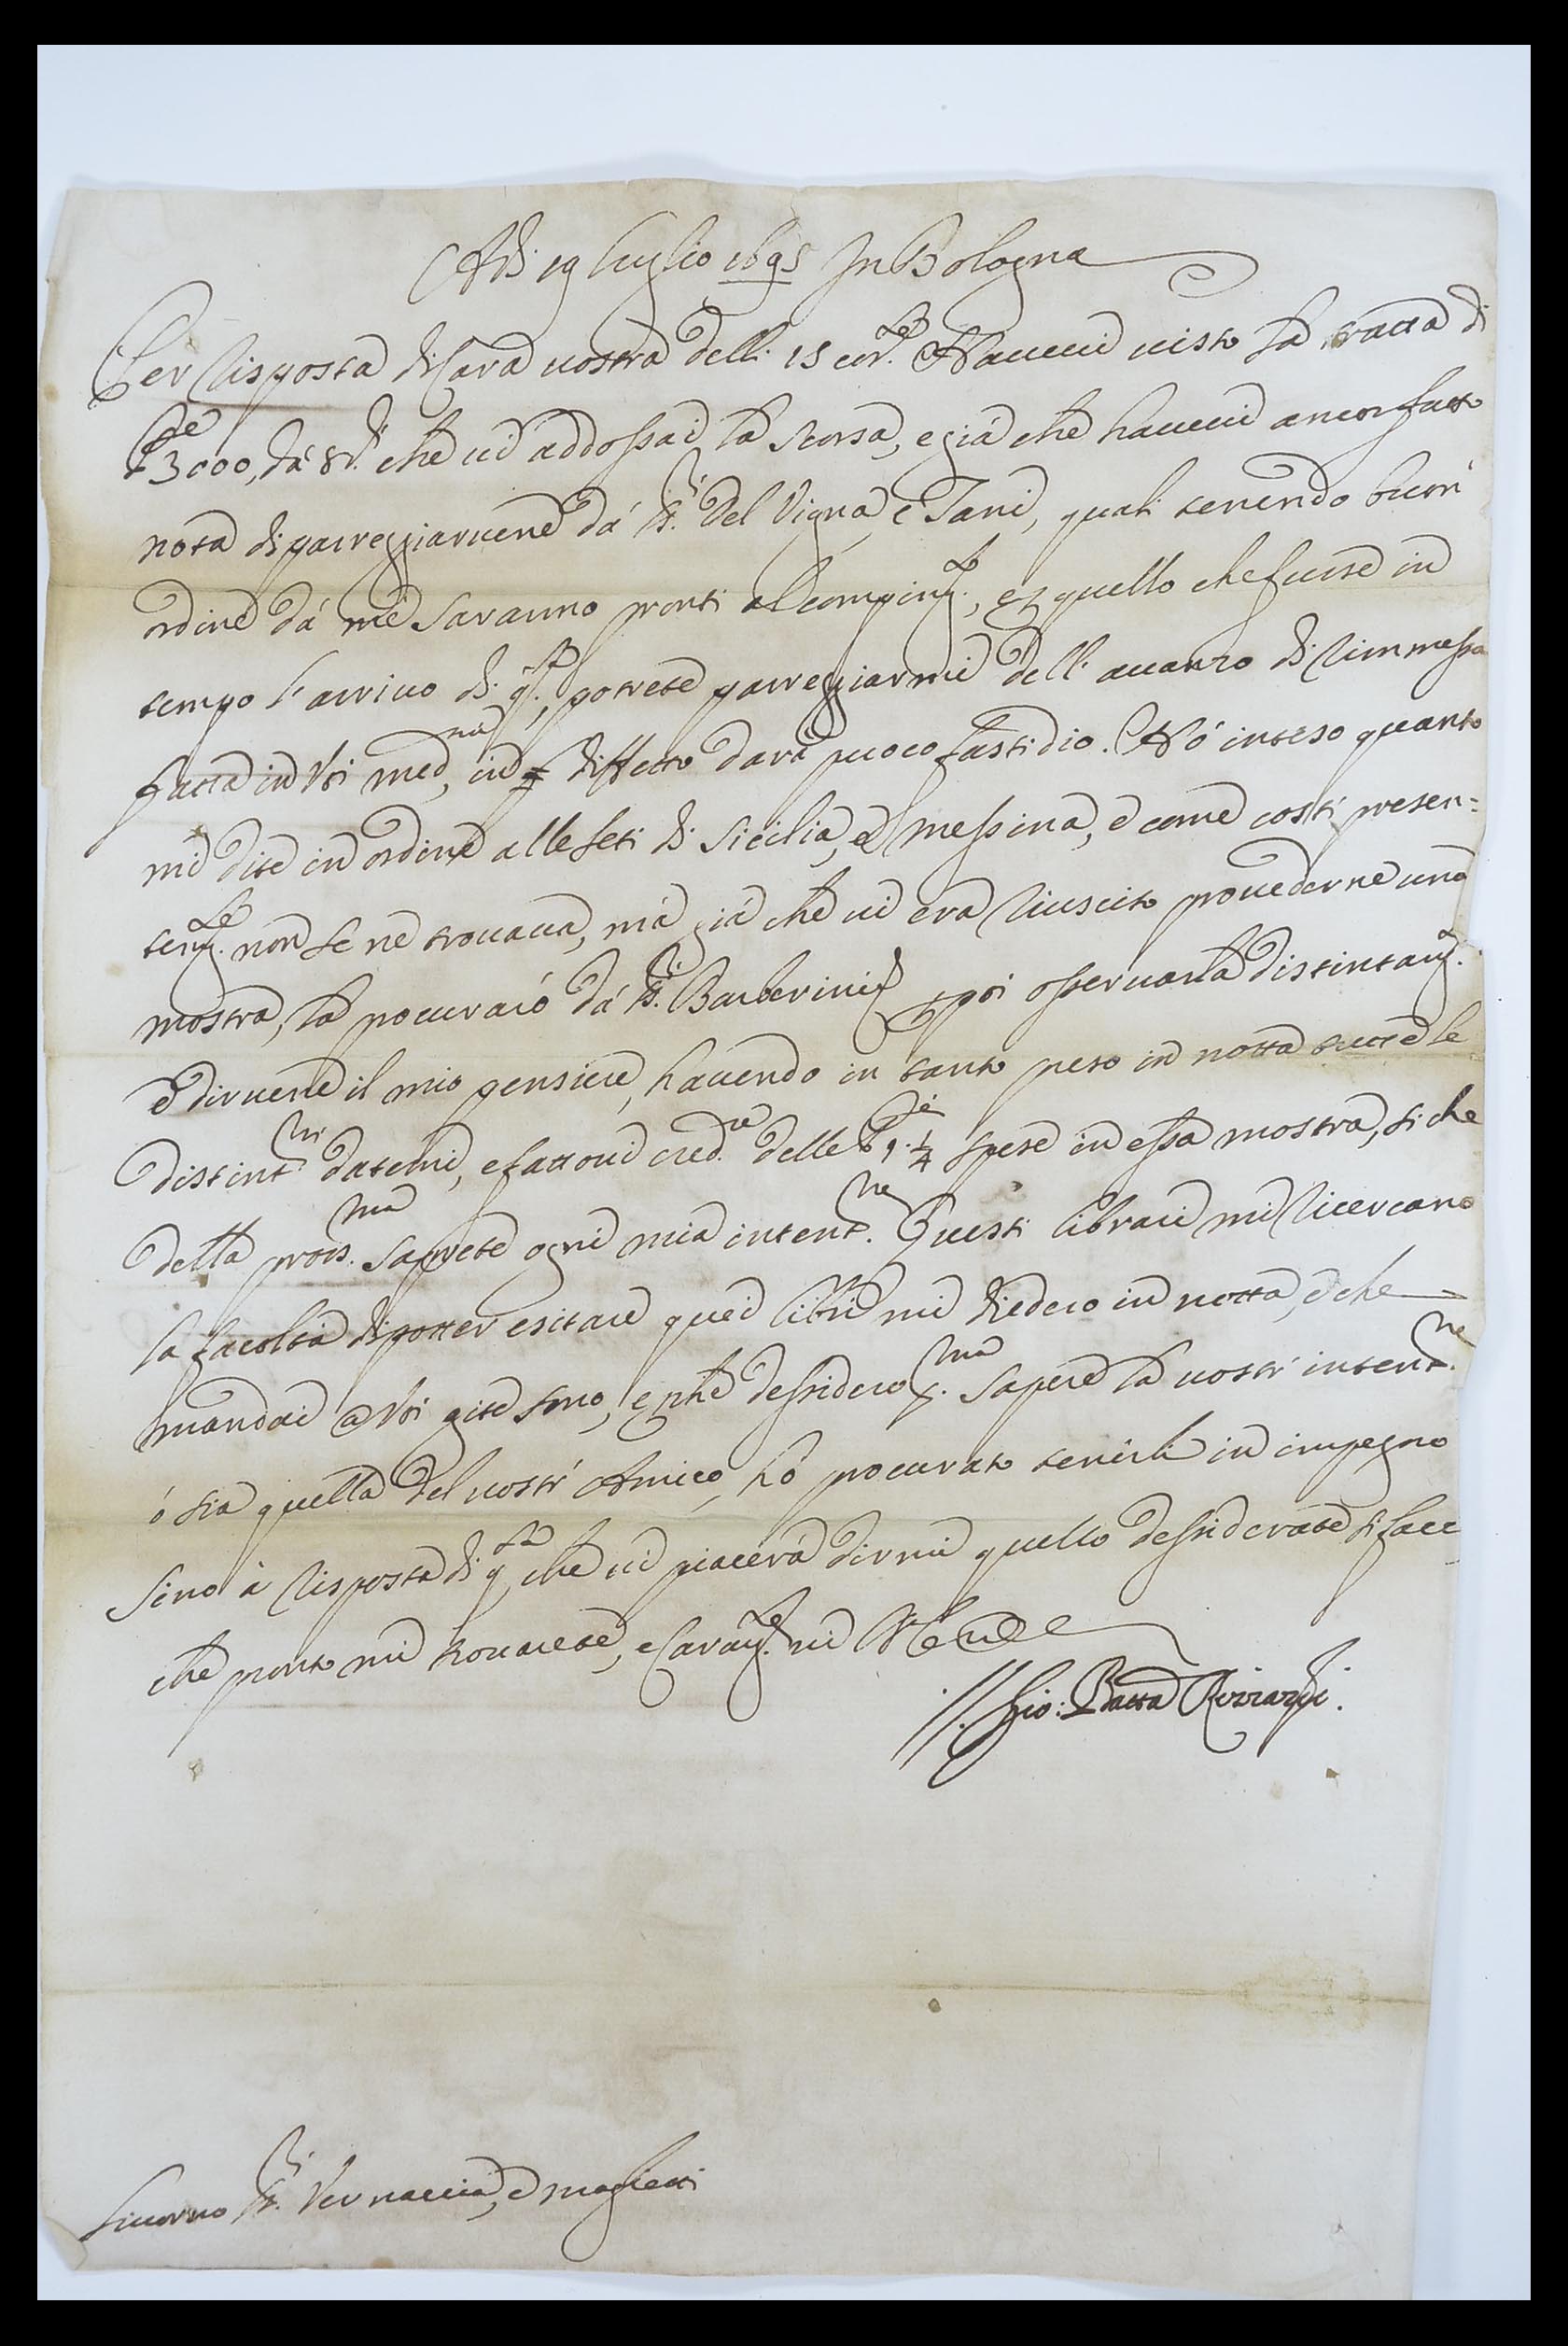 Adi 19 luglio 1695 In Bologna
Per risposta di Cara vostra delli 15 cor.te Havervi visto la tratta di
3000, da 8/r.li che vi addossai la scorsa, e già che havevi ancor fatto
nota di parreggiarvene dà SS.ri Del Vigna, e Tani, quali tenendo buon
ordine dà me saranno pronti al compim.to, e quello che fusse in
tempo l'arrivo di q.ta, potrete parreggiarmi dell'avanzo di rimmessa
fatta in Voi med.ma, in diffetto darà puoco fastidio. Hò inteso quanto
mi dite in ordine alle seti di Sicilia, e Messina, e come costì presen=
tem.te non se ne trovava, mà già che vi era riuscito provederne una
mostra, la procurarò dà SS.ri Barberini poi osservarla distintam.te
e dirvene il mio pensiere, havendo in tanto preso in notta tutte le
distint.ni datemi, e fattovi cred.re delle 9. 1/4 spese in essa mostra, si che
della pros.ma saprete ogni mia intent.ne Questi librari mi ricercano
la facoltà di potter esitare quei libri mi diedero in notta, e che
mandai a Voi gite sono, e perche dessidero p.ma sapere la vostr' intent.ne
ò sia quella del vostr' Amico, hò procurato tenirli in impegno
sino à risposta di q.ta che vi piacerà dirmi quello dessiderate si facc.
che pronto mi trovarete, e Caram.te vi
Gio: Batta Rizzardi.
Livorno SS.ri Vernaccia, e Maglietti